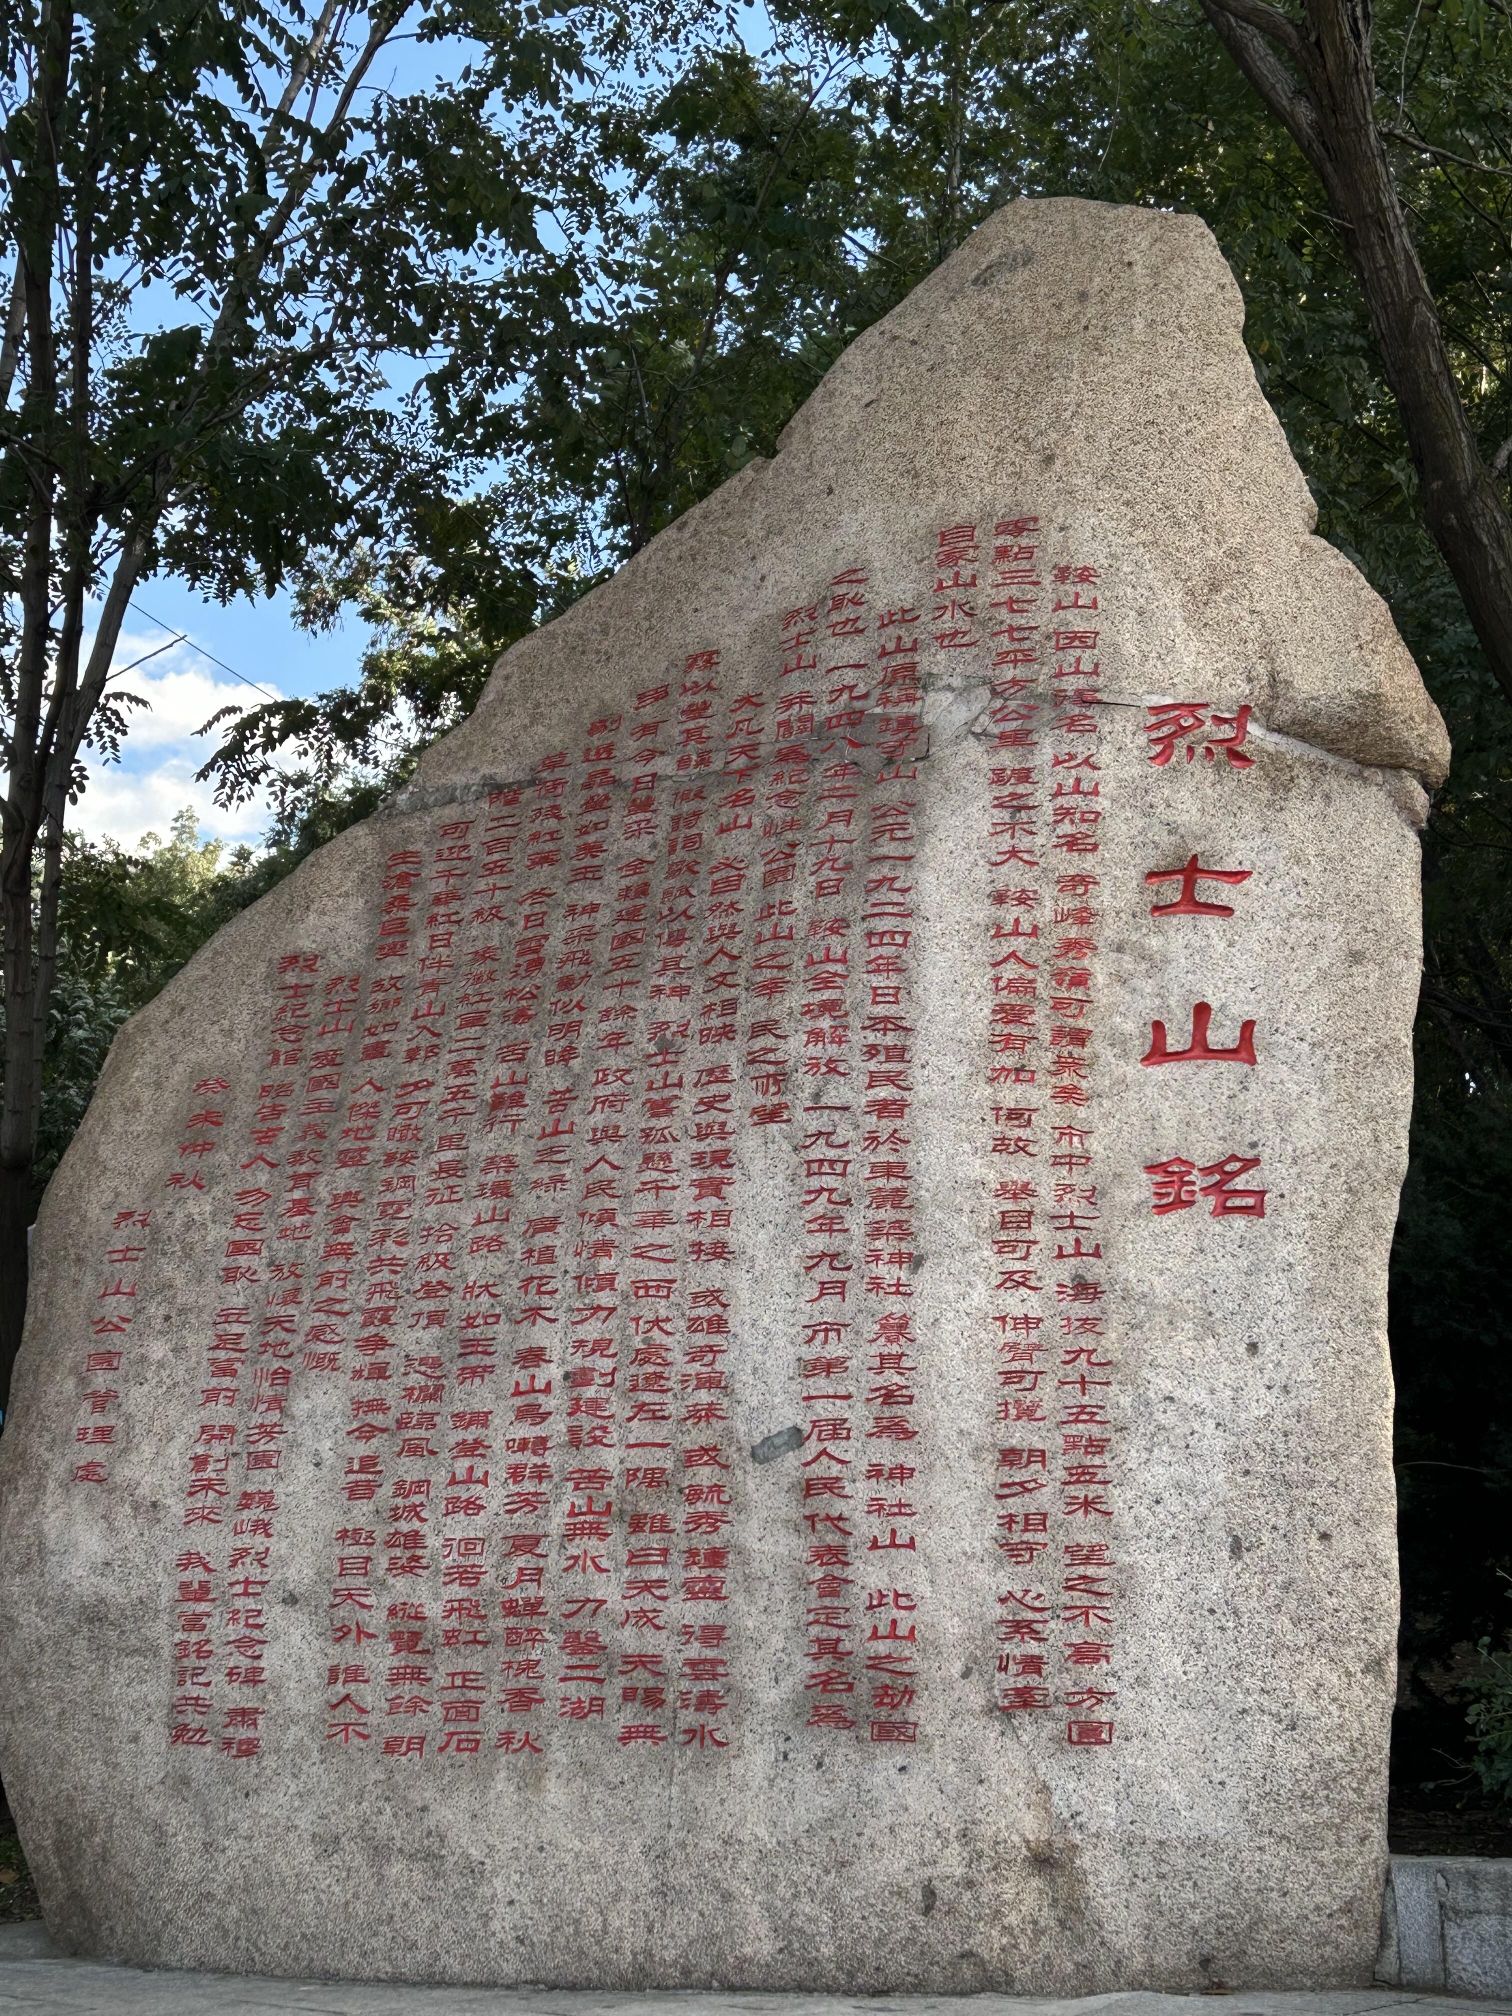 烈士山銘
鞍山因山得名 以山知名 奇峰秀嶺可謂衆矣 市中烈士山 海拔九十五點五米 望之不高 方圓
零點三七七平方公里 踱之不大 鞍山人偏愛有加 何故 舉目可及 伸臂可攬 朝夕相守 心系情牽
自家山水也
此山原稱鏡子山 公元一九二四年日本殖民者於東麓築神社 黨其名爲 神社山 此山之劫 國
之恥也 一九四八年二月十九日 鞍山全境解放 一九四九年九月 市第一届人民代表會定其名爲
烈士山 并闢爲紀念性公園 此山之幸 民之所望
大凡天下名山 必自然與人文相映 歷史與現實相接 或雄奇渾莽 或毓秀鐘靈 得雲濤水
霧以瑩其韻 假詩詞歌賦以傳其神 烈士山舊孤懸千華之西 伏處遼左一隅 雖曰天成 天賜無
多 有今日豐采 全賴建國五十餘年 政府與人民傾情傾力規劃建設 苦山無水 力鑿二湖
剔透晶瑩如美玉 神采飛動似明眸 苦山乏綠 廣植花木 春山鳥囀群芳 夏月蟬醉槐香 秋
草荷殘紅葉 冬日雪湧松濤 苦山難行 築環山路 狀如玉帶 鋪登山路 徊若飛虹 正面石
階二百五十級 象徵紅軍二萬五千里長征 拾級登頂 憑欄臨風 鋼城雄姿 縱覽無餘 朝
可迎千華紅日伴青山入郭 夕可瞰鞍鋼雲彩共飛霞争輝 撫今追昔 極目天外 誰人不
生滄桑巨變 故鄉如畫 人傑地靈 興會無前之感慨
烈士山 愛國主義教育基地 放懷天地 怡情芳園 巍峨烈士紀念碑 肅穆
烈士紀念館 昭告吉人 勿忘國恥 立足富前 開創未來 我輩當銘記共勉
癸未仲秋
烈士山公園管理處